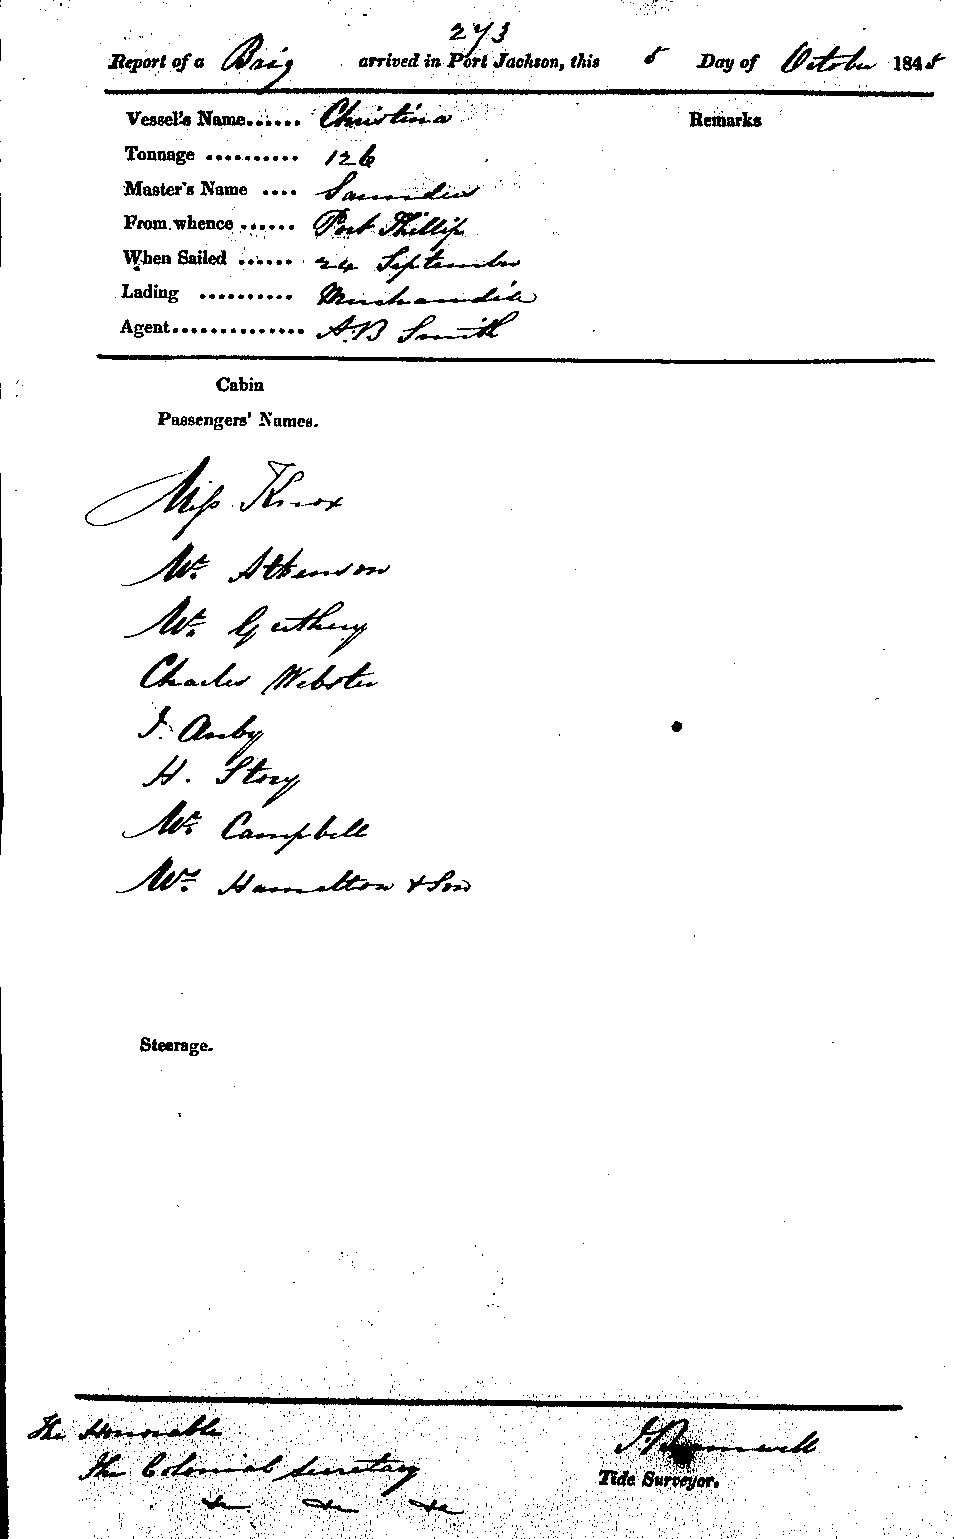 273
Report of a Brig arrived in Port Jackson, this 5 Day of October 1845
Vessel's Name...... Christina
Remarks
Tonnage .......... 126
Master's Name .... Saunders
From whence ...... Port Phillip
When Sailed ...... 24 September
Lading .......... Merchandise
Agent.............. A.B Smith
Cabin
Passengers' Names.
Miss Knox
Mr. Atkenson
Mr. Guthery
Charles Webster
H. Story
Mr. Campbell
Mr. Hamelton & Son
Steerage.
The Honorable
The Colonial Secretary
&c &c &c
Tide Surveyor.